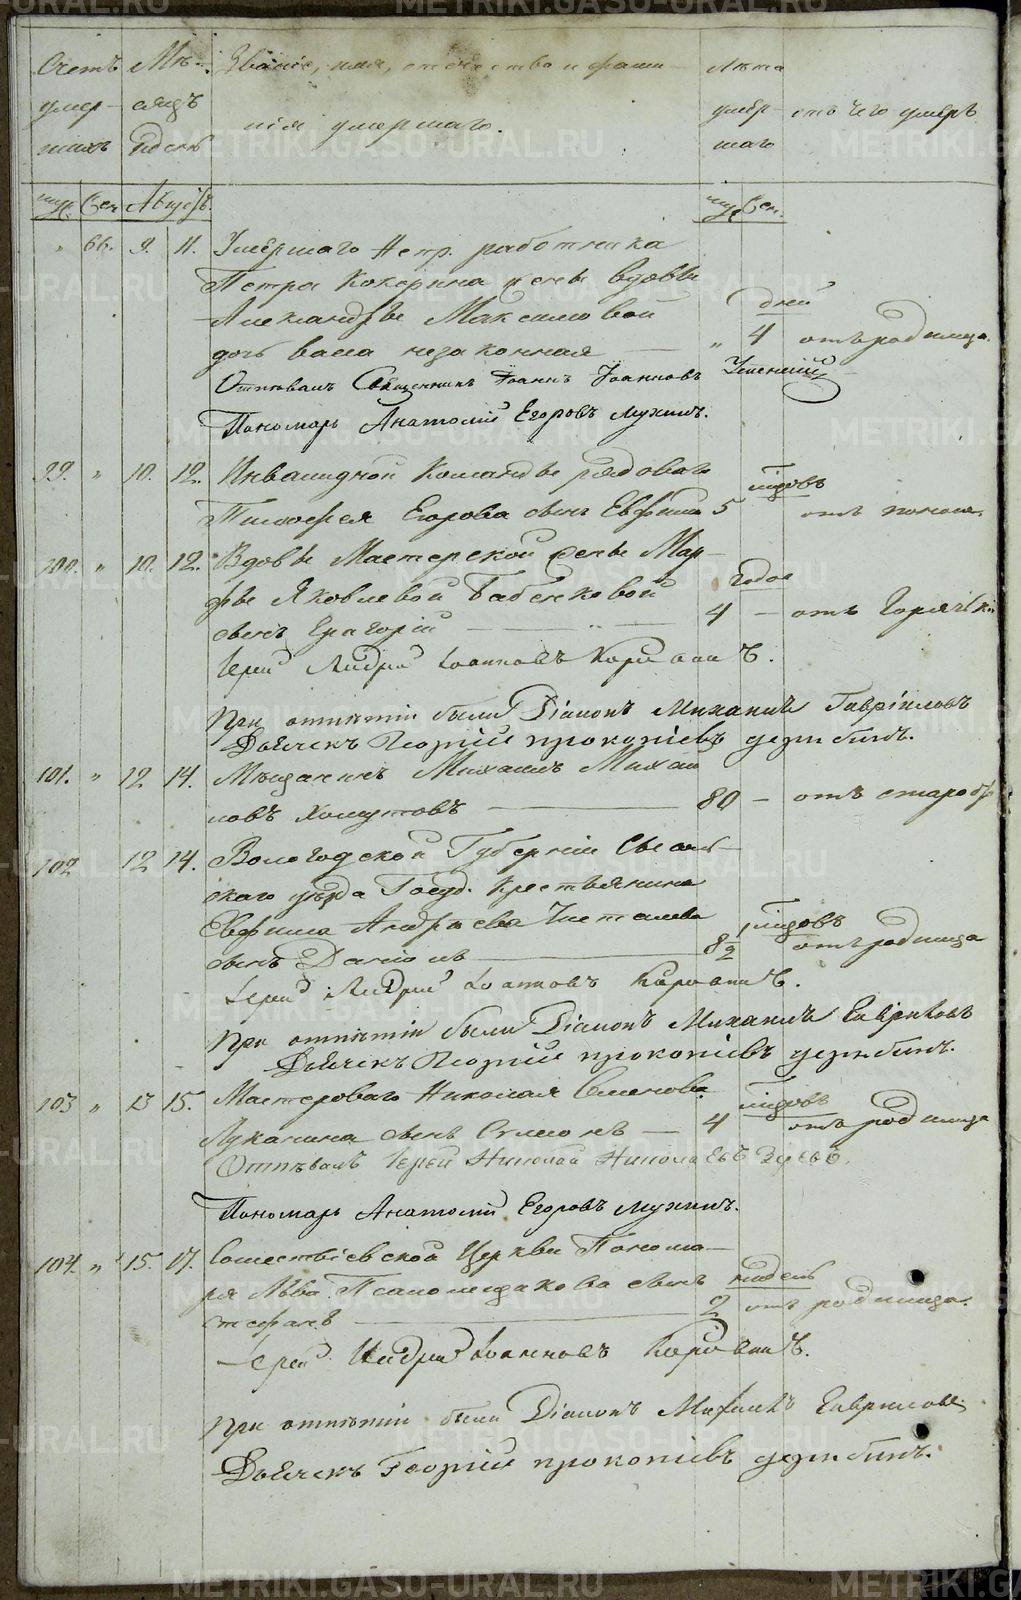 Счетъ умер- шихъ
Мѣ- сяцъ и день
Званіе, имя, отечество и фами- лія умершаго.
Лѣта умер- шаго
отъ чего умеръ
муж. Жен. Августъ. муж. Жен.
" 66. 9. 11. Умершаго Непр. работника
Петра Кокорина жены вдовы
Александры Максимовой дней
дочь незаконная — " 4 отъ родимца.
Отпѣвалъ Священникъ Іоаннъ Іоанновъ Успенскій
Пономарь Анатолій Егоровъ Мухинъ.
99. " 10. 12. Инвалидной Команды рядоваго годовъ
Тимофея Егорова сынъ Евфимій 5 отъ поноса.
100. " 10. 12. Вдовы Мастерской жены Мар-
фы Яковлевой Бабенковой годов
сынъ Григорій — 4 — отъ Горячки
Іерей Андрей Іоанновъ
При отпѣтіи были Діаконъ Михаилъ Гавриловъ
Дьячекъ Георгій Прокопіевъ
101. " 12 14. Мѣщанинъ Михаилъ Михаи
ловъ Хомутовъ — 80 — отъ старос
102 12 14. Вологодской Губерніи Своль-
скаго уѣзда Госуд. Крестьянина
Евфима Андрѣева Чисталева годовъ
сынъ Даніилъ — 8½ отъ родимца
Іерей Андрей Іоанновъ
При отпѣтіи были Діаконъ Михаилъ Гавриловъ
Дьячекъ Георгій Прокопіевъ
103 " 13 15. Мастероваго Николая Семенова годовъ
Луканина сынъ Симеонъ — 4 отъ родимца
Отпѣвалъ Іерей Николай Николаевъ
Пономарь Анатолій Егоровъ Мухинъ.
104. " 15. 17. Сошествіевской Церкви Понома-
ря Льва сынъ недель
Стефанъ — 2 отъ родимца.
Іерей Андрей Іоанновъ
При отпѣтіи были Діаконъ Михаилъ Гавриловъ
Дьячекъ Георгій Прокопіевъ
METRIKI.GASO-URAL.RU